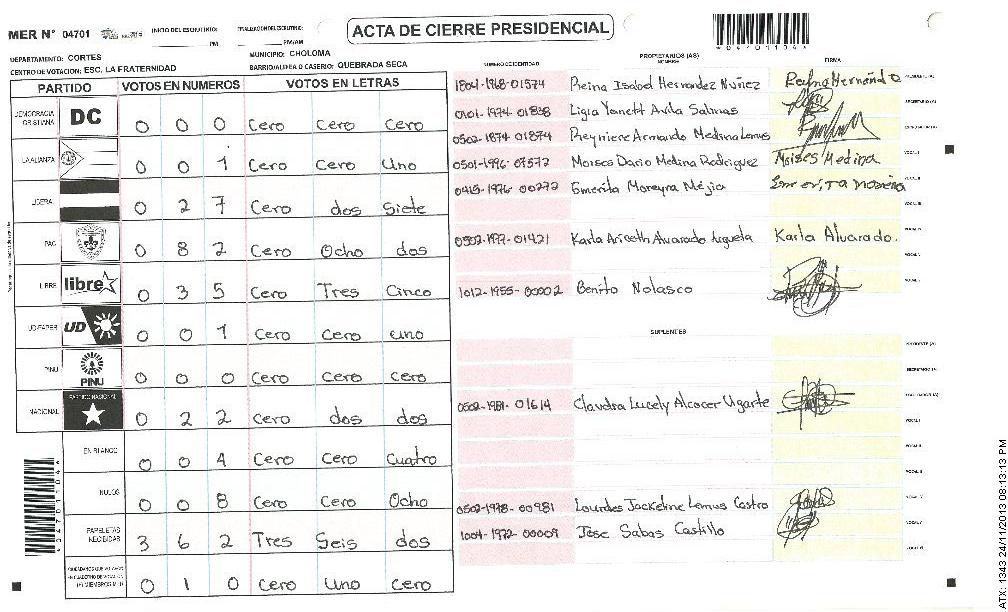 ACTA DE CIERRE PRESIDENCIAL
MER N° 04701
INICIO DEL ESCRUTINIO: PM
FINALIZACION DEL ESCRUTINIO: PM/AM
DEPARTAMENTO: CORTES
MUNICIPIO: CHOLOMA
CENTRO DE VOTACION: ESC. LA FRATERNIDAD
BARRIO/ALDEA O CASERIO: QUEBRADA SECA
PARTIDO VOTOS EN NUMEROS VOTOS EN LETRAS
DEMOCRACIA CRISTIANA DC 0 0 0 Cero Cero Cero
LA ALIANZA 0 0 1 Cero Cero Uno
LIBERAL 0 2 7 Cero dos Siete
PAC 0 8 2 Cero Ocho dos
LIBRE libre 0 3 5 Cero Tres Cinco
UD-FAPER UD 0 0 1 Cero Cero uno
PINU PINU 0 0 0 Cero Cero cero
NACIONAL PARTIDO NACIONAL 0 2 2 Cero dos dos
EN BLANCO 0 0 4 Cero Cero Cuatro
NULOS 0 0 8 Cero Cero Ocho
PAPELETAS RECIBIDAS 3 6 2 Tres Seis dos
0 1 0 Cero Uno Cero
NUMERO DE IDENTIDAD PROPIETARIOS (AS) NOMBRE FIRMA
1804-1968-01574 Reina Isabel Hernandez Nuñez Reina Hernánd PRESIDENTE (A)
0101-1974-01838 Ligia Yanett Avila Salinas SECRETARIO (A)
0502-1874 01874 Reyniere Armando Medina Lemus ESCRUTADOR (A)
0501-1996-07572 Moises Dario Medina Rodriguez Moises Medina VOCAL I
0415-1976-00272 Emerita Moreyra Mejia VOCAL II
VOCAL III
0502-1977-01421 Karla Ariceth Alvarado Argueta Karla Alvarado. VOCAL IV
VOCAL V
1012-1955-00002 Benito Nolasco
SUPLENTES
PRESIDENTE (A)
SECRETARIO (A)
0502-1981-01614 Claudia Lucely Alcocer Ugarte ESCRUTADOR (A)
VOCAL I
VOCAL II
VOCAL III
0502-1978-00981 Lourdes Jackeline Lemus Castro VOCAL IV
1004-1972-00009 Jose Sabas Castillo VOCAL V
ATX: 1343 24/11/2013 08:13:13 PM